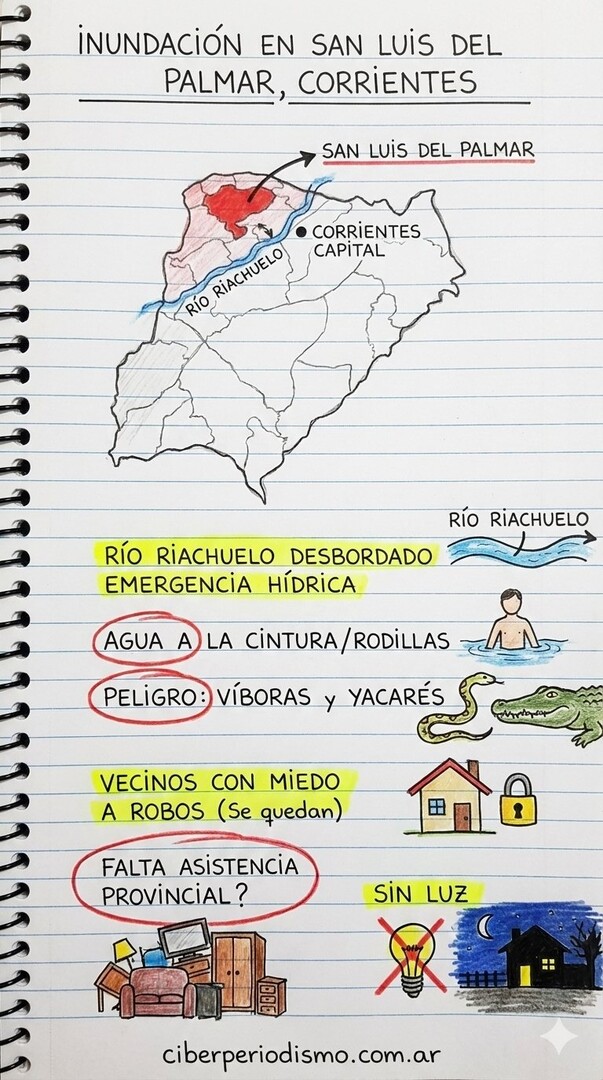 INUNDACIÓN EN SAN LUIS DEL
PALMAR, CORRIENTES
SAN LUIS DEL PALMAR
CORRIENTES
CAPITAL
RÍO RIACHUELO
RÍO RIACHUELO
RÍO RIACHUELO DESBORDADO
EMERGENCIA HÍDRICA
AGUA A LA CINTURA/RODILLAS
PELIGRO: VÍBORAS y YACARÉS
VECINOS CON MIEDO
A ROBOS (Se quedan)
FALTA ASISTENCIA
PROVINCIAL?
SIN LUZ
ciberperiodismo.com.ar